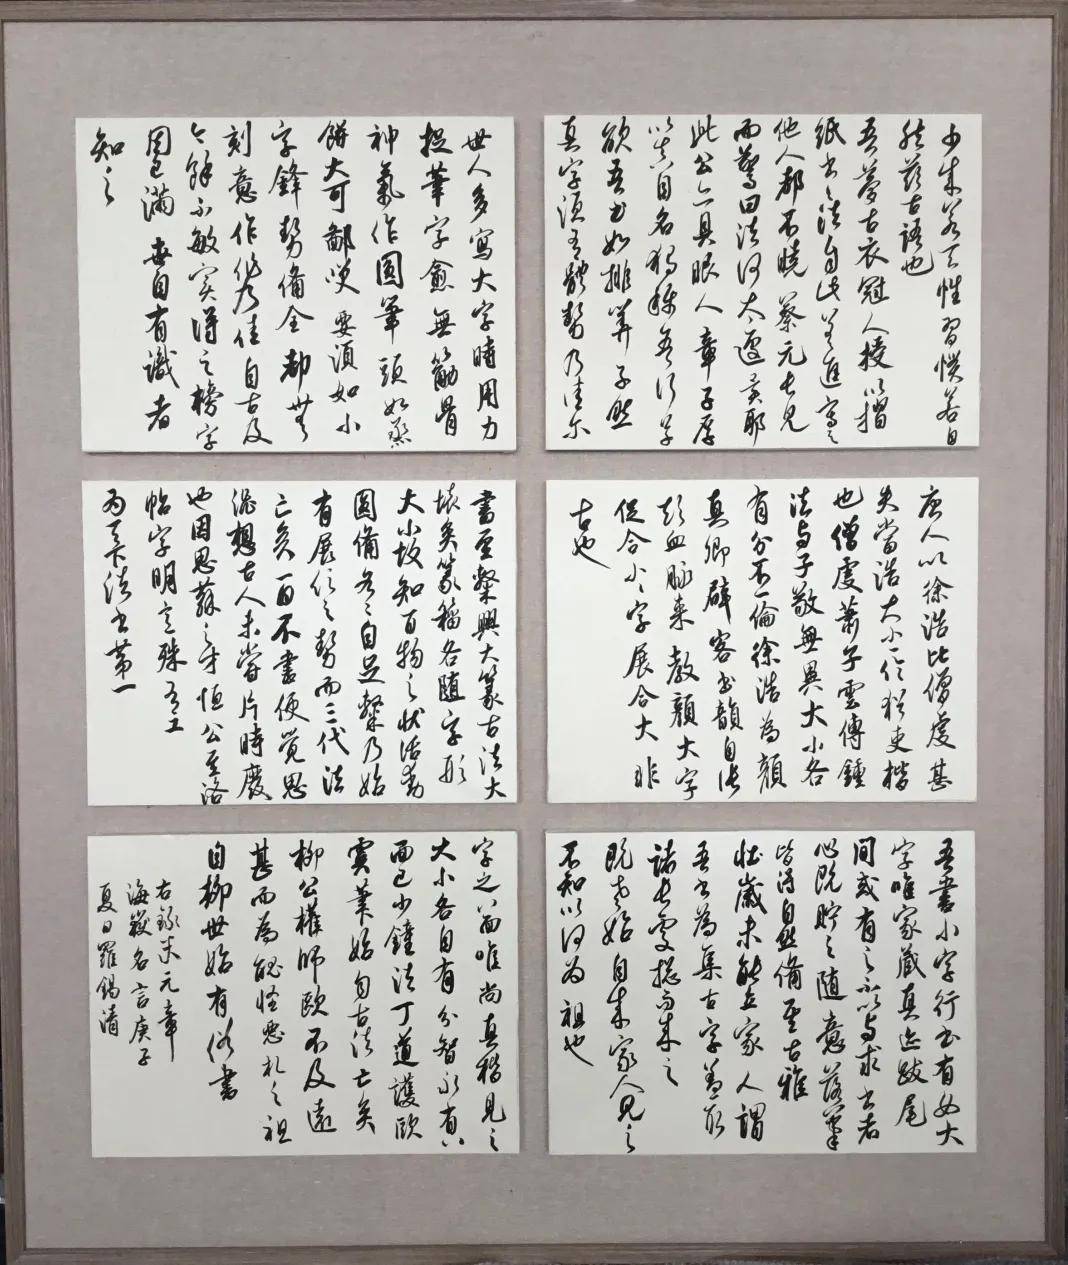 少成若天性習慣若自
然茲古語也
吾夢古衣冠人授以摺
紙書書法自此差進寫之
他人都不曉蔡元長見
而驚曰法何太遽異耶
此公亦具眼人章子厚
以真自名獨稱吾行草
欲吾書如排筭子然
真字須有體勢乃佳尔
世人多寫大字時用力
捉筆字愈無筋骨
神氣作圓筆頭如蒸
餅大可鄙笑要須如小
字鋒勢備全都無
刻意作偽乃佳自古及
今余不敏實得之榜字
固已滿世自有識者
知之
唐人以徐浩比僧虔甚
失當浩大小一倫猶吏楷
也僧虔蕭子雲傳鍾
法與子敬無異大小各
有分不一倫徐浩為顏
真卿辟客書韻自張
顛血脈來教顏大字
促令小小字展令大非
古也
書至隸興大篆古法大
壞矣篆籀各隨字形
大小故知百物之狀活動
圓備各各自足隸乃始
有展促之勢而三代法
亡矣一日不書便覺思
澁想古人未嘗片時廢
也因思蘇之才恒公至洛
帖字明意殊有工
為天下法書第一
吾書小字行書有如大
字唯家藏真迹跋尾
間或有之不以與求書者
心既貯之隨意落筆
皆得自然備其古雅
壯歲未能立家人謂
吾書為集古字蓋取
諸長處總而成之
既老始自成家人見之
不知以何為祖也
字之八面唯尚真楷見之
大小各自有分智永有八
面已少鍾法丁道護歐
虞筆始勻古法亡矣
柳公權師歐不及遠
甚而為醜怪惡札之祖
自柳世始有俗書
右錄米元章
海嶽名言庚子
夏日羅錫清